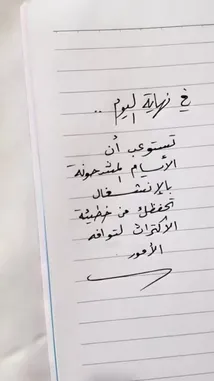 في نهاية اليوم ..
تستوعب أن
الأيام المشحونة
بالإنشغال
تحفظك من خطيئة
الاكتراث لتوافه
الأمور